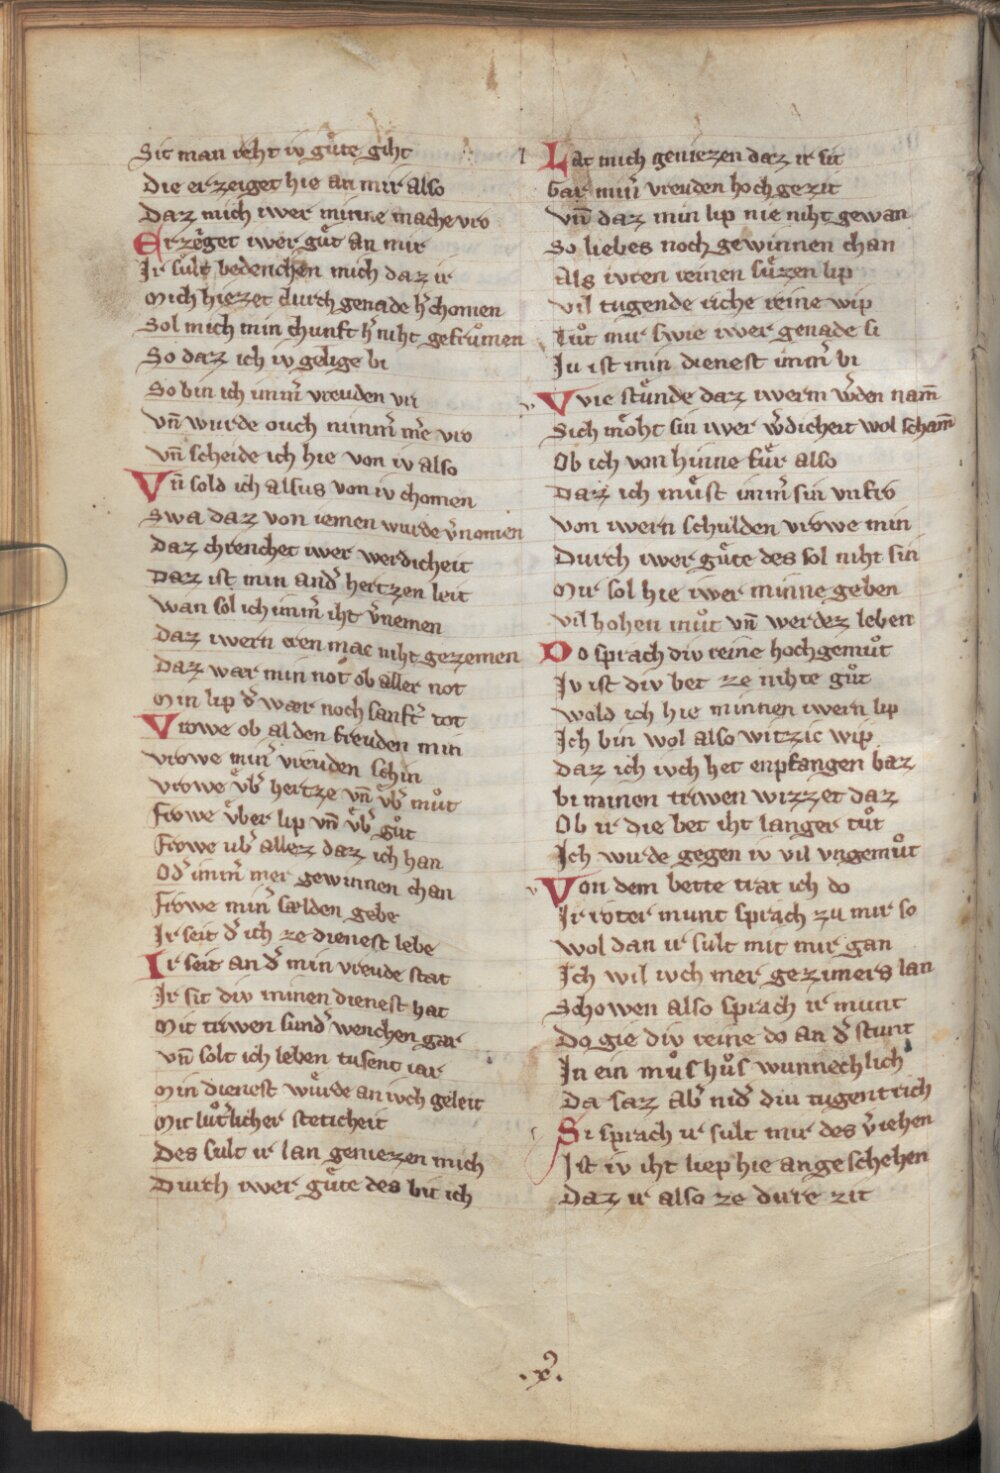 Sit man reht iv guͦte giht
Die erzeiget hie an mir also
Daz mich iwer minne mache vro
Erzeͤget iwer guͤt an mir
Ir sult bedenchen mich daz ir
Mich hiezet durch genade h̾chomen
Sol mich min chunft h̾ niht gefruͦmen
So daz ich iv gelige bi
So bin ich imm̾ vreuden vri
Vn̄ wurde ouch nimm̾ me vro
Vn̄ scheide ich hie von iv also
Vn̄ sold ich alsus von iv chomen
Swa daz von iemen wurde v̾nomen
Daz chrenchet iwer werdicheit
Daz ist min and̾ hertzen leit
Wan sol ich imm̾ iht v̾nemen
Daz iwern eren mac niht gezemen
Daz war min not ob aller not
Min lip d̾ wær noch sanft̾ tot
Vrowe ob al den freuden min
Vrowe min̾ vreuden schin
Vrowe vͤb̾ hertze vn̄ vͤb̾ muͦt
Frowe vͤber lip vn̄ vͤb̾ guͦt
Frowe vb̾ allez daz ich han
Od̾ imm̾ mer gewinnen chan
Frowe min̾ sælden gebe
Ir seit d̾ ich ze dienest lebe
Ir seit an d̾ min vreude stat
Ir sit div minen dienest hat
Mit triwen sund̾ wenchen gar
Vn̄ solt ich leben tusent iar
Min dienest wuͤrde an iwch geleit
Mit luͦt̾licher steticheit
Des sult ir lan geniezen mich
Durch iwer guͤte des bit ich
Lat mich geniezen daz ir sit
Gar min̾ vreuden hochgezit
Vn̄ daz min lip nie niht gewan
So liebes noch gewinnen chan
Als ivren reinen suͤzen lip
Vil tugende riche reine wip
Tuͦt mir swie iwer genade si
Iu ist min dienest imm̾ bi
Vvie stuͤnde daz iwerm w̾den nam̄
Sich moͤht sin iwer w̾dicheit wol scham̄
Ob ich von hinne fuͤr also
Daz ich muͤst imm̾ sin vnfro
Von iwern schulden vrowe min
Durch iwer guͤte des sol niht sin
Mir sol hie iwer minne geben
Vil hohen muͦt vn̄ werdez leben
Do sprach div reine hochgemuͦt
Iv ist div bet ze nihte guͦt
Wold ich hie minnen iwern lip
Ich bin wol also witzic wip
Daz ich iwch het enpfangen baz
Bi minen triwen wizzet daz
Ob ir die bet iht langer tuͦt
Ich wurde gegen iv vil vngemuͦt
Von dem bette trat ich do
Ir roter munt sprach zu mir so
Wol dan ir sult mit mir gan
Ich wil iwch mer gezimers lan
Schowen also sprach ir munt
Do gie div reine do an d̾ stunt
In ein muͦs huͦs wunnechlich
Da saz ab̾ nid̾ diu tugentrich
Si sprach ir sult mir des v̾iehen
Ist iv iht liep hie an geschehen
Daz ir also ze dure zit
.x.